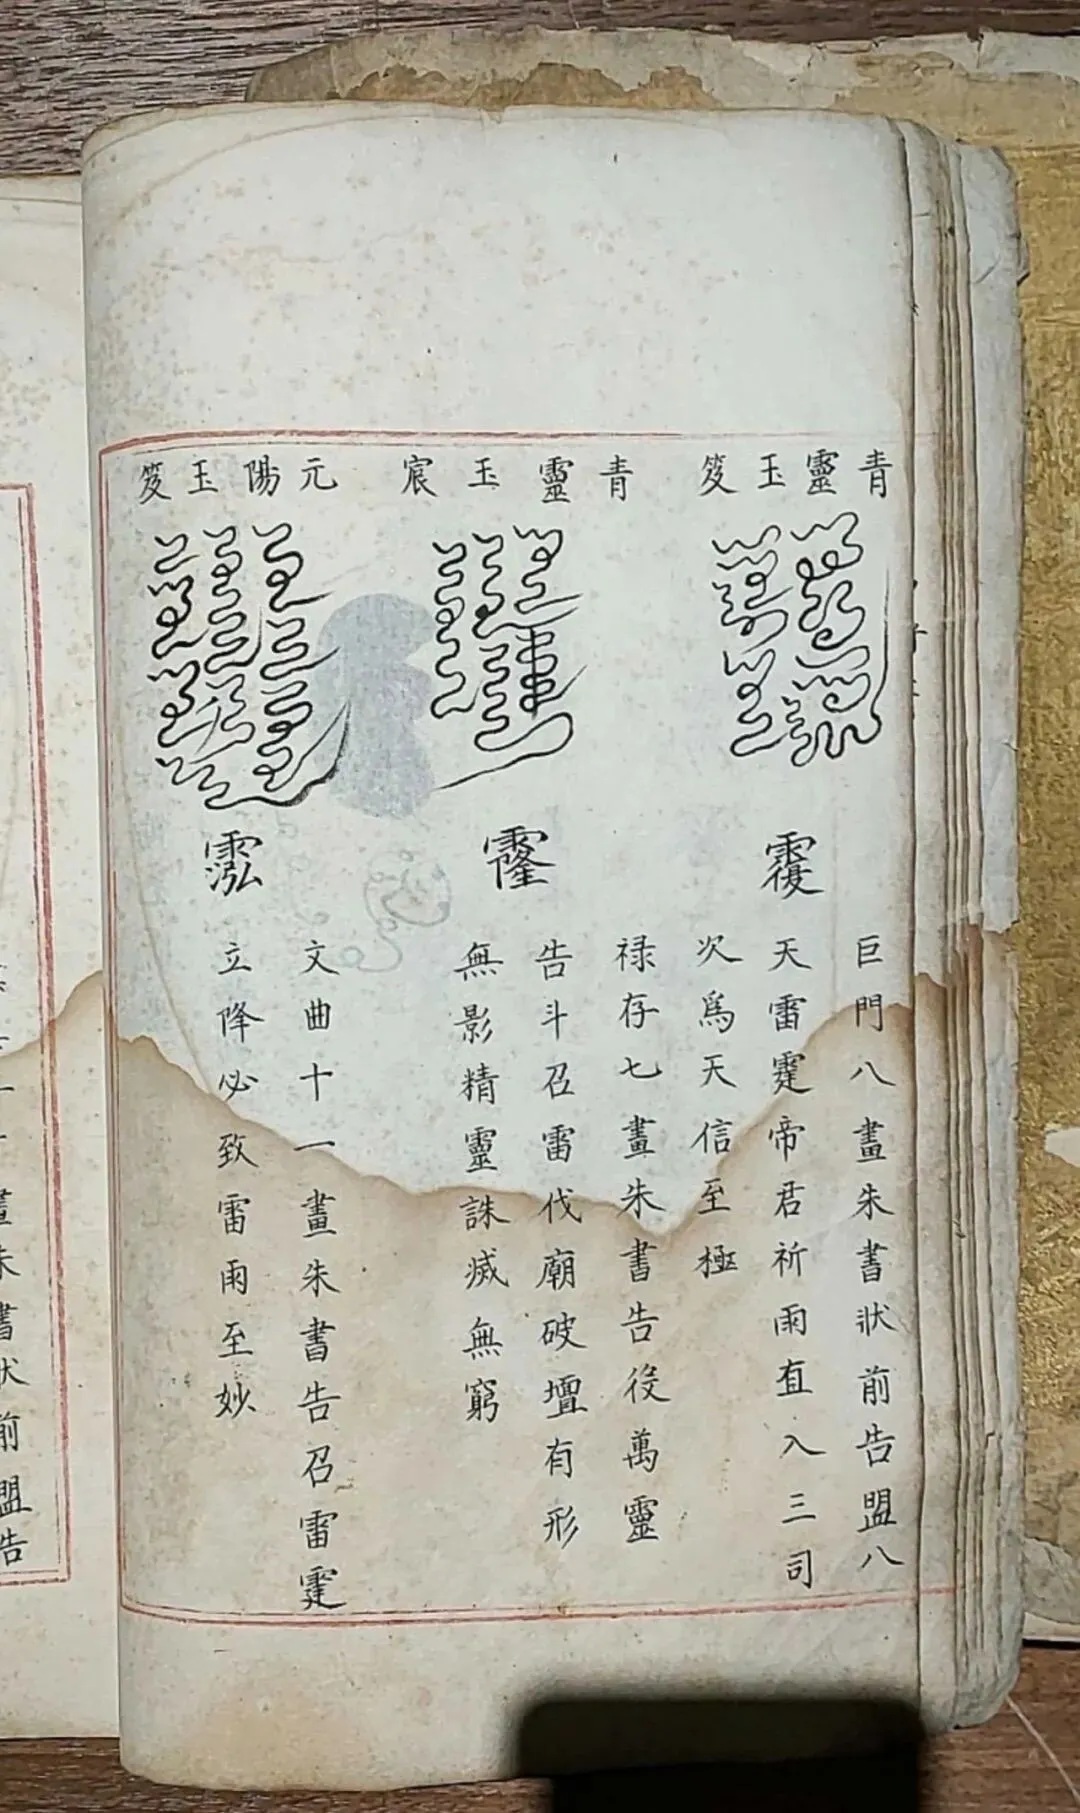 青靈玉笈
䨱
巨門八畫朱書狀前告盟八
天雷霆帝君祈雨直入三司
次爲天信至極
青靈玉宸
霳
禄存七畫朱書告役萬靈
告斗召雷伐廟破壇有形
無影精靈誅滅無窮
元陽玉笈
文曲十一畫朱書告召雷霆
立降必致雷雨至妙
畫朱書狀前盟告